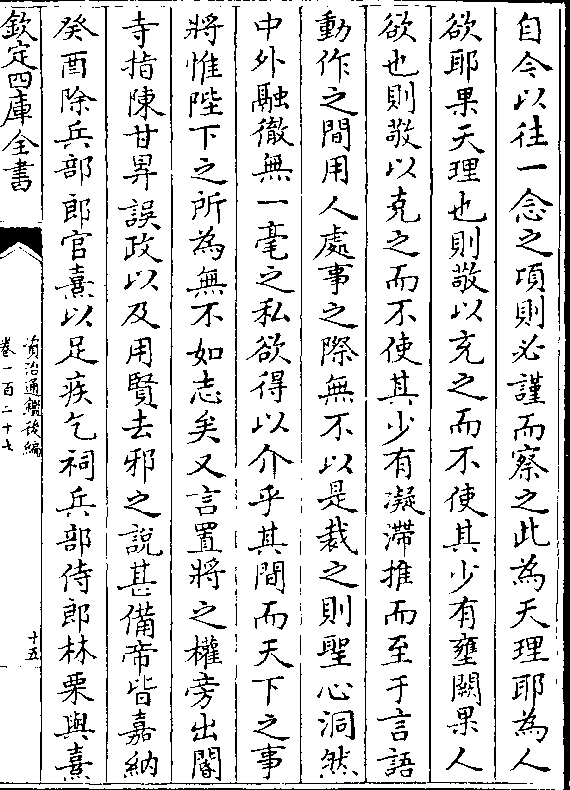 自今以往一念之頃則必謹而察之此為天理耶為人
欲耶果天理也則敬以充之而不使其少有壅闕果人
欲也則敬以克之而不使其少有凝滯推而至于言語
動作之間用人處事之際無不以是裁之則聖心洞然
中外融徹無一毫之私欲得以介乎其間而天下之事
將惟陛下之所為無不如志矣又言置將之權旁出閽
寺指陳甘昇誤政以及用賢去邪之說甚備帝皆嘉納
癸酉除兵部郎官熹以足疾乞祠兵部侍郎林栗與熹
欽定四庫全書
資治通鑑後編
卷一百二十七
十五